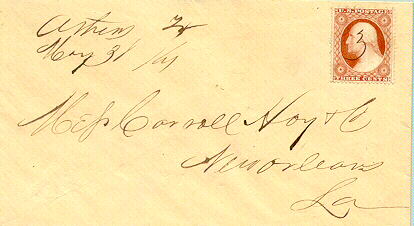 Athens
May 31 /61
U.S. POSTAGE
3
THREE CENTS
Mess Carroll Hoy & Co
New Orleans
La